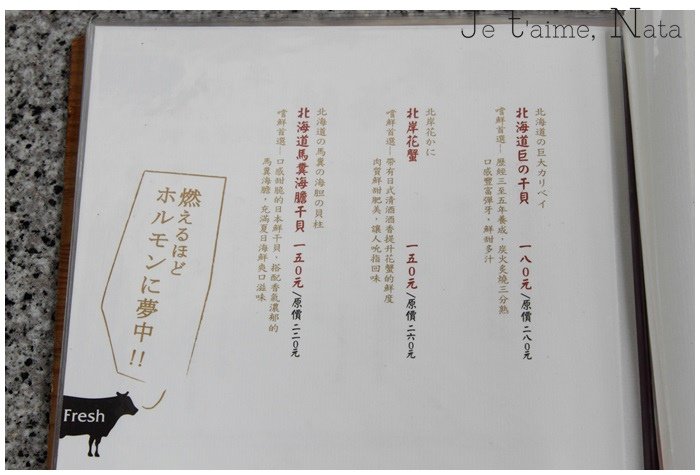 Je t'aime, Nata
北海道の巨大カリベイ
北海道巨の干貝 一八0元/原價 二八0元
嚐鮮首選—歷經三至五年養成，炭火炙燒三分熟
口感豐富彈牙，鮮甜多汁
北岸花かに
北岸花蟹 一五0元/原價 二六0元
嚐鮮首選—帶有日式清酒酒香提升花蟹的鮮度
肉質鮮甜肥美，讓人吮指回味
北海道の馬糞の海胆の貝柱
北海道馬糞海膽干貝 一五0元/原價 二二0元
嚐鮮首選—口感甜脆的日本鮮干貝，搭配香氣濃郁的
馬糞海膽，充滿夏日海鮮爽口滋味
燃えるほど
ホルモンに夢中!!
Fresh